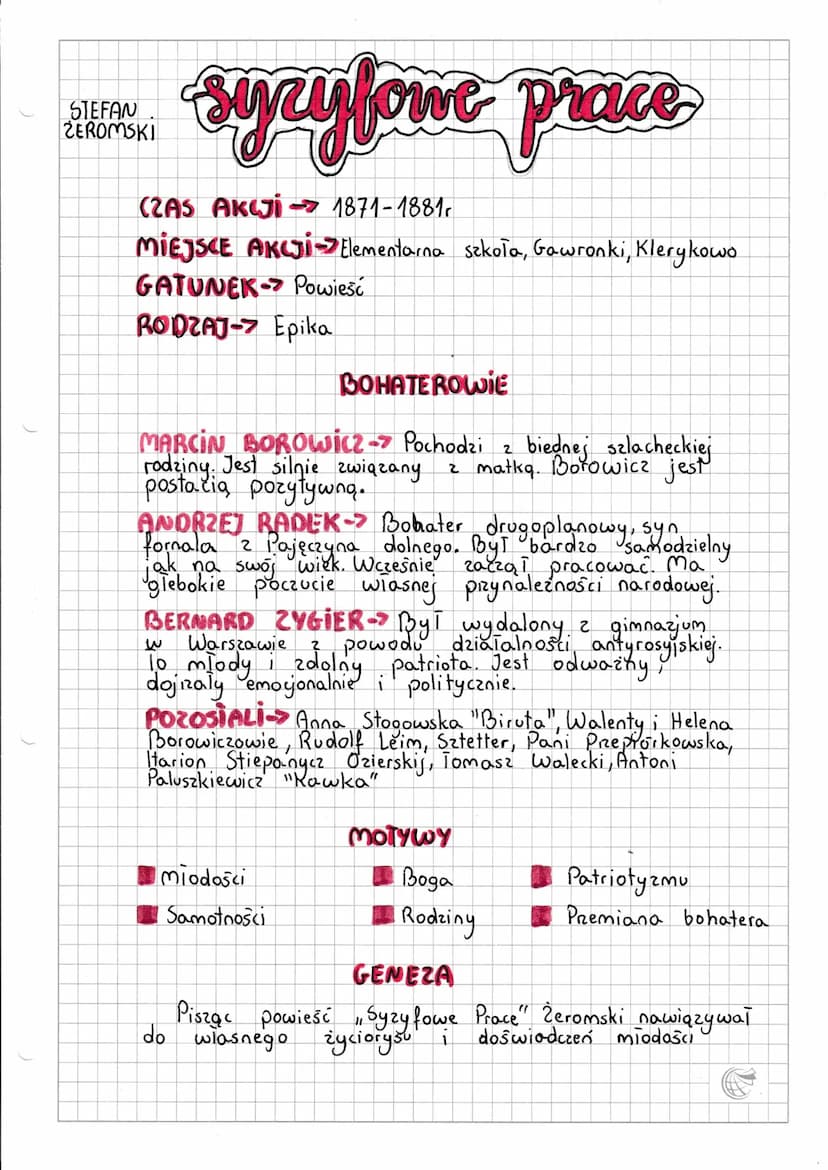 syzyfowe prace
STEFAN
ŻEROMSKI
CZAS AKCJI -> 1871-1881r
MIEJSCE AKCJI -> Elementarna szkoła, Gawronki, Klerykowo
GATUNEK -> Powieść
RODZAJ -> Epika
BOHATEROWIE
MARCIN BOROWICZ -> Pochodzi z biednej szlacheckiej
rodziny. Jest silnie związany z matką. Borowicz jest
postacią pozytywną.
ANDRZEJ RADEK -> Bohater drugoplanowy, syn
fornala z Pajęczyna dolnego. Był bardzo samodzielny
jak na swój wiek. Wcześnie zaczął pracować. Ma
głebokie poczucie własnej przynależności narodowej.
BERNARD ZYGIER -> Był wydalony z gimnazjum
w Warszawie z powodu działalności antyrosyjskiej.
To młody i zdolny patriota. Jest odważny,
dojrzały emocjonalnie i politycznie.
POZOSTALI -> Anna Stogowska "Biruta", Walenty i Helena
Borowiczowie, Rudolf Leim, Sztetter, Pani Przepiórkowska,
Harion Stiepanycz Ozierskij, Tomasz Walecki, Antoni
Paluszkiewicz "Kawka"
MOTYWY
Młodości Boga Patriotyzmu
Samotności Rodziny Przemiana bohatera
GENEZA
Pisząc powieść „Syzyfowe Prace" Żeromski nawiązywał
do własnego życiorysu i doświadczeń młodości